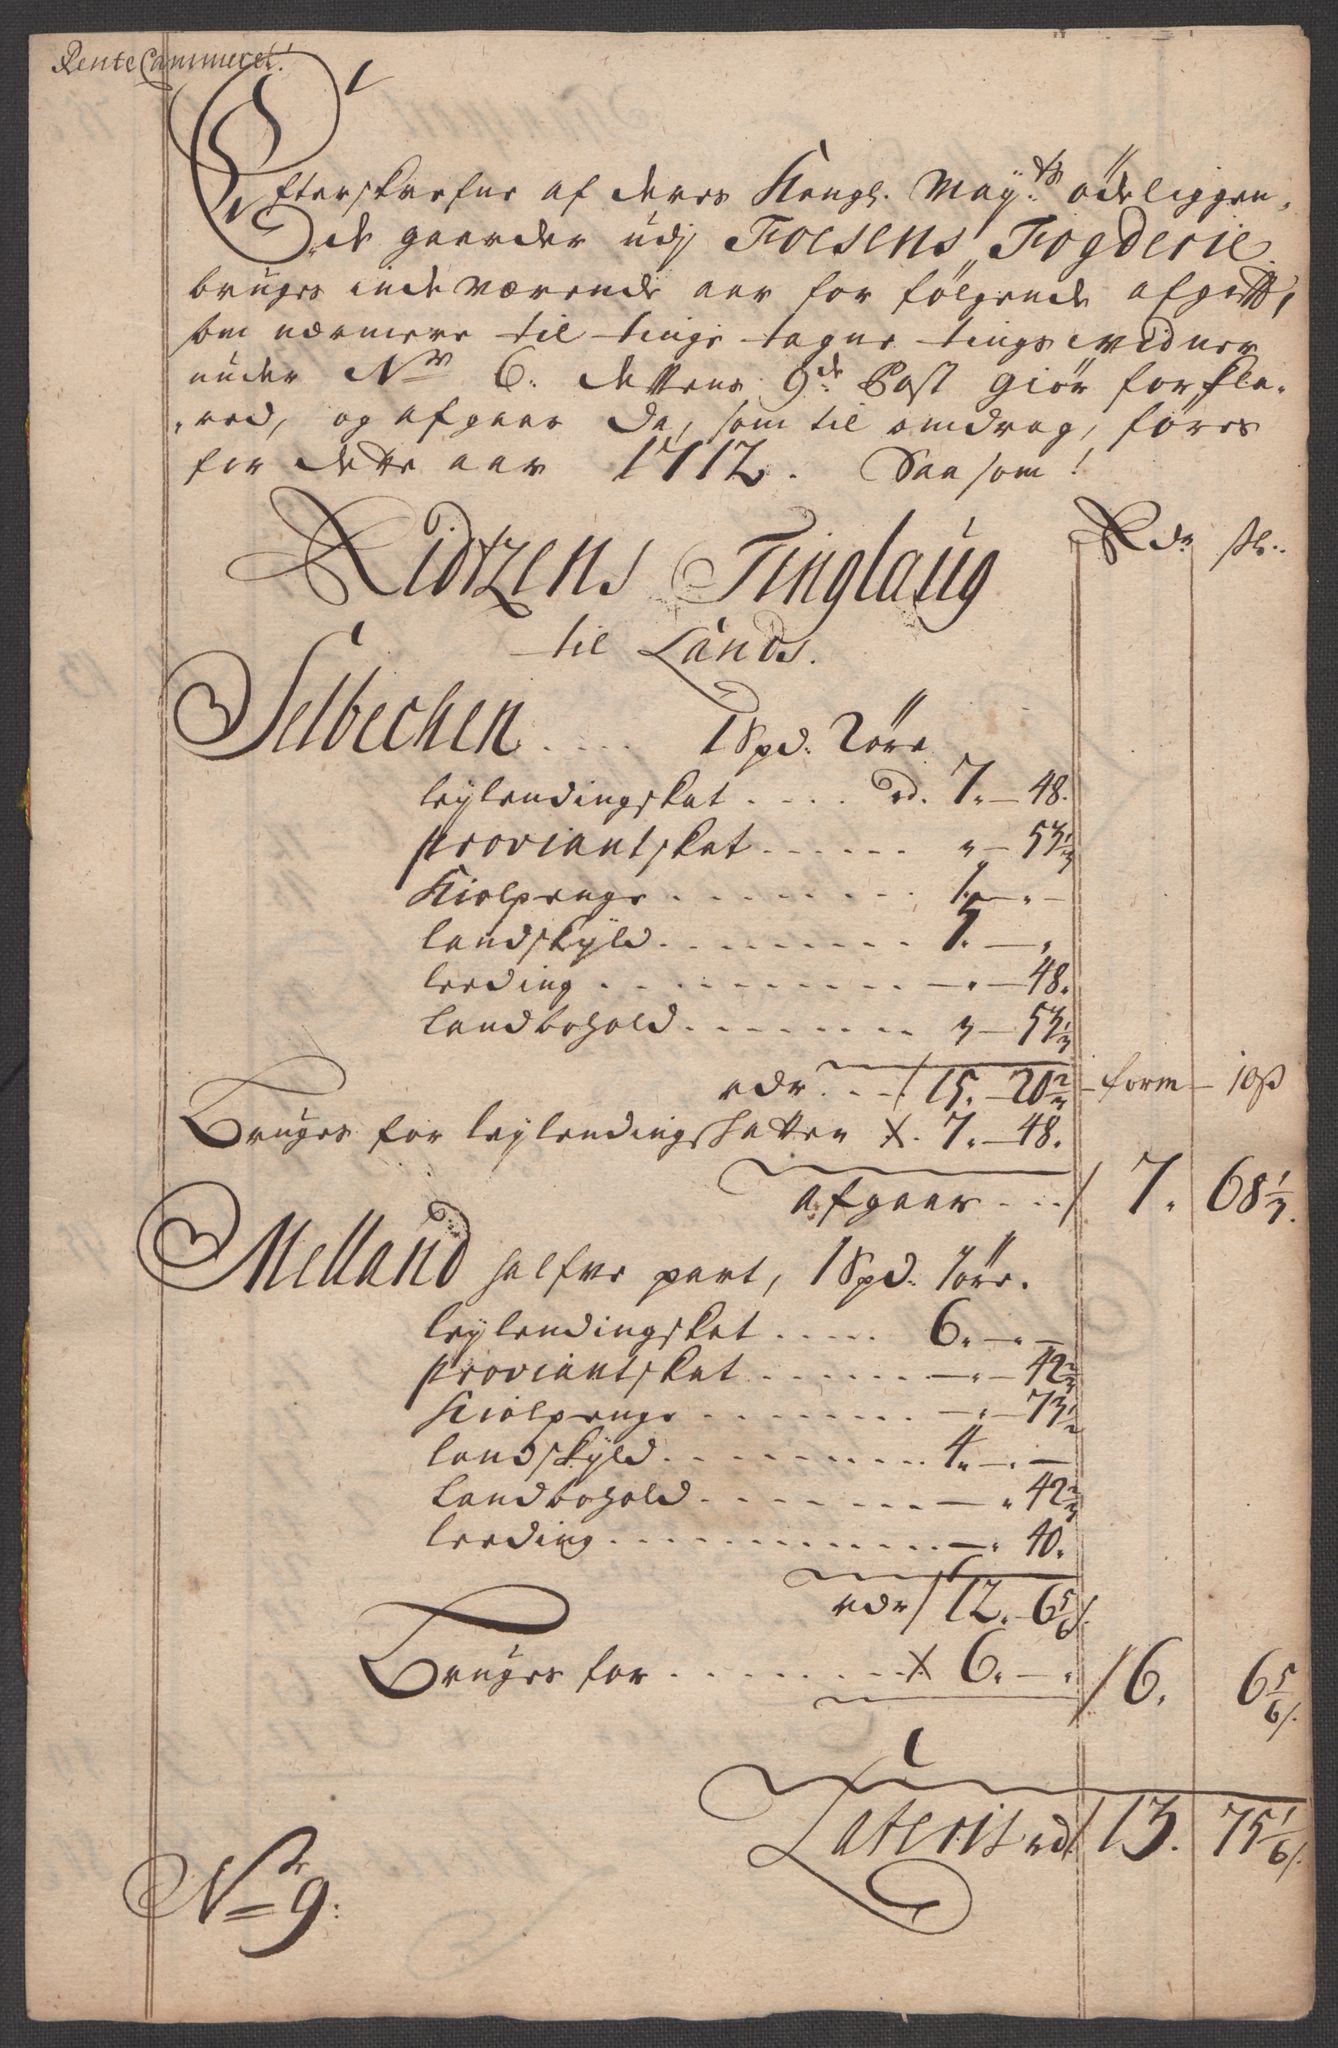 RenteCammeret!
Efterskrefne af deres Kongl. May:ts ödeliggen,
de gaarder udj Foesens Fogderie
bruges indeværende aar for følgende afgifft,
om nærmere til tinge tagne tings widner
under Nr 6. dettens 9de Post giør forkla,
red, og afgaar da, som til omdrag, føres
for dette aar 1712. Saasom!
Ridtzens Tinglaug Rdr ſk..
til Lands.
Selbechen .... 1 Spd. 2 öre
leylendingskat .... rd. 7. — 48.
proviantskat ...... " — 53 1/3
Kiolpenge ........ 1. — " —
landskyld ........ 5. — "
leeding .......... — " — 48.
landbohold ........ " — 53 1/3
rdr ... / 15. — 20 2/3 — form — 10 ß
Bruges for leylendingshatten X. 7. — 48.
afgaar ... / 7. 68 1/3.
Melland halfve part, 1 Spd. 1 öre.
leylendingskat ..... 6. — " —
proviantskat ....... — " — 42 2/3
Kiolpenge ........ — " — 73 1/2
landskyld .......... 4. — " —
landbohold ........ — " 42 2/3
leeding ............ — " 40.
rdr / 12. — 6 5/6 /.
Bruges for ........ X 6. — " / 6. 6 5/6 /.
Lateris rd / 13. 75 1/6 /.
Nr 9: